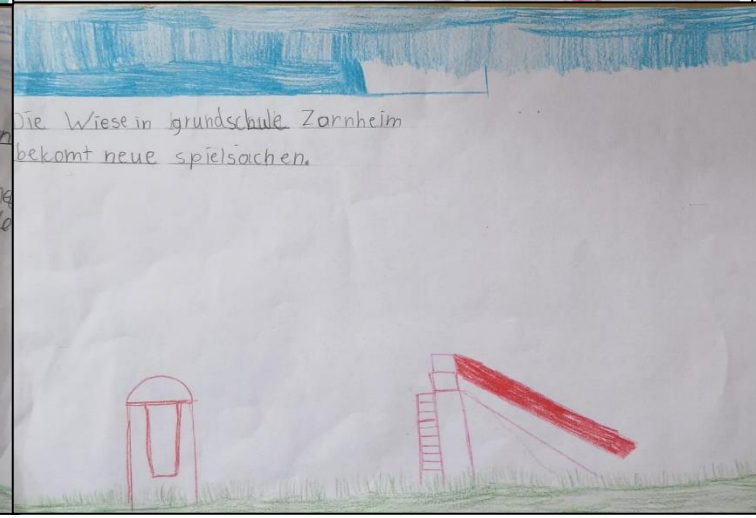 Die Wiese in grundschule Zornheim
bekomt neue spielsachen.